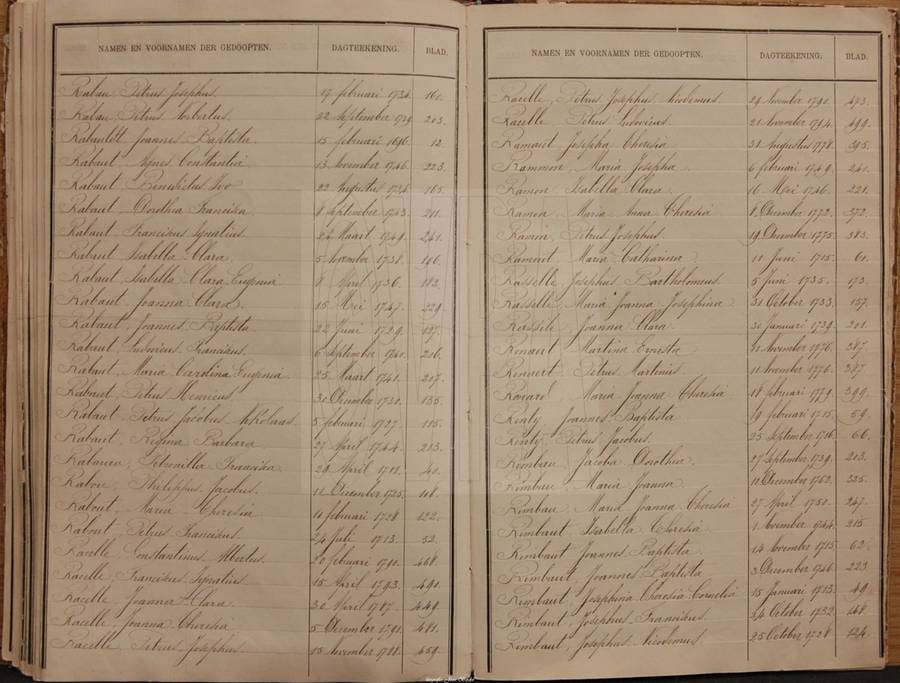 NAMEN EN VOORNAMEN DER GEDOOPTEN. DAGTEEKENING. BLAD.
Rabau Petrus Josephus. 17 februari 1734. 160.
Rabau, Petrus Norbertus. 22 September 1739. 203.
Rabaulett Joannes Baptista 15 februari 1696. 12.
Rabaut, Agnes Constantia 13 November 1746. 223.
Rabaut Benedictus Ivo 22 Augustus 1734. 165.
Rabaut Dorothea Francisca 8 September 1743. 211.
Rabaut Franciscus Ignatius 24 Maart 1749. 241.
Rabaut Isabella Clara 5 November 1738. 196.
Rabaut Isabella Clara Eugenia 8 April 1736. 182.
Rabaut Joanna Clara 15 Mei 1747. 229.
Rabaut, Joannes Baptista 22 Juni 1729. 127.
Rabaut Ludovicus Franciscus 6 September 1740. 206.
Rabaut, Maria Carolina Eugenia 25 Maart 1741. 207.
Rabaut Petrus Henricus 30 December 1730. 135.
Rabaut Petrus Jacobus Nikolaas 5 februari 1727. 115.
Rabaut, Regina Barbara 27 April 1744. 213.
Petronilla Francisca 29 April 1711. 40.
Philippus Jacobus. 11 December 1725. 108.
Rabout, Maria Theresia 11 februari 1728. 122.
Rabout Petrus Franciscus. 24 Juli 1713. 52.
Racelle Constantinus Albertus 20 februari 1790. 468.
Racelle, Franciscus Ignatius 15 April 1793. 490.
Racelle, Joanna Clara 30 April 1787. 449.
Racelle, Joanna Theresia 5 December 1791. 481.
Racelle Petrus Josephus 15 November 1788. 459.
NAMEN EN VOORNAMEN DER GEDOOPTEN. DAGTEEKENING. BLAD.
Racelle, Petrus Josephus Nicodemus. 29 November 1790. 473.
Racelle Petrus Ludovicus 21 November 1794. 499.
Ramaut Josepha Theresia 31 Augustus 1778. 395.
Rammon, Maria Josepha 6 februari 1749. 240.
Ramon Isabella Clara 16 Mei 1746. 221.
Ramon Maria Anna Theresia 8 December 1772. 372.
Ramon, Petrus Josephus. 19 December 1775. 383.
Ramont Maria Catharina 11 Juni 1715. 61.
Rasselle, Josephus Bartholomeus 5 Juni 1735. 173.
Rasselle Maria Joanna Josephina 31 October 1733. 157.
Rassile Joanna Clara 30 Januari 1739. 201.
Renaut Martina Ernesta 11 November 1776. 387.
Petrus Martinus 11 November 1776. 387.
Maria Joanna Theresia 18 februari 1779. 399.
Joannes Baptista 19 februari 1715. 59.
Petrus Jacobus. 25 September 1716. 66.
Rimbau Jacoba Dorothea 17 September 1739. 203.
Rimbau Maria Joanna 10 December 1762. 325.
Rimbau Maria Joanna Theresia 27 April 1750. 247.
Rimbaut Isabella Theresia 1 November 1744. 215.
Rimbaut Joannes Baptista 14 November 1715. 62.
Rimbaut, Joannes Baptista 3 December 1746. 223.
Rimbaut, Josephina Theresia Cornelia 15 Januari 1713. 49.
Rimbaut, Josephus Franciscus 24 October 1732. 148.
Rimbaut, Josephus Nicodemus 25 October 1728. 124.